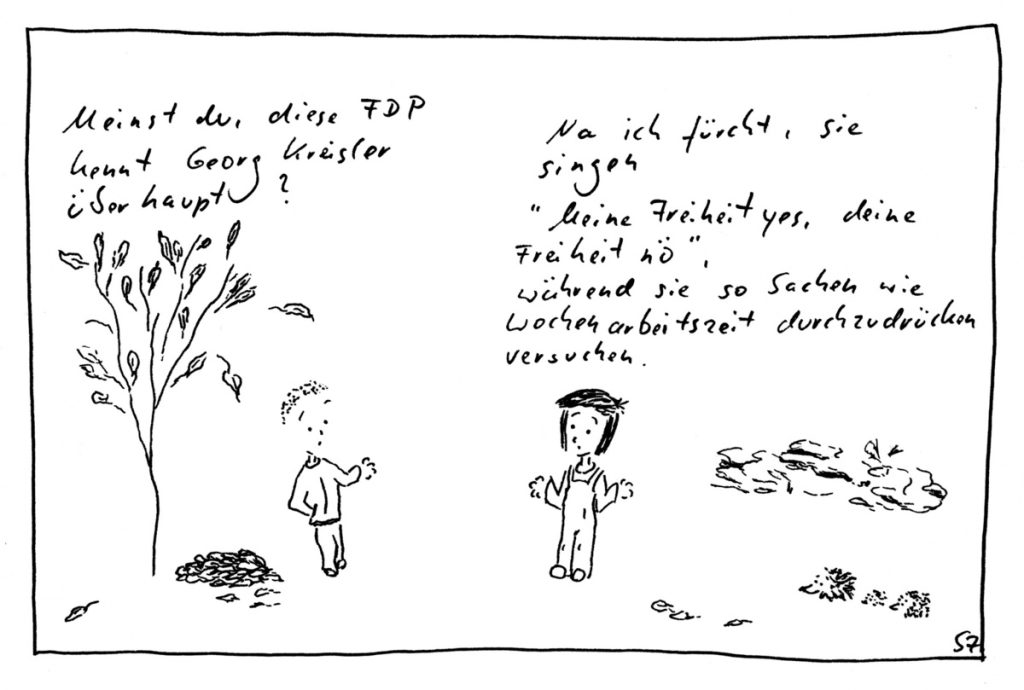 Meinst du, diese FDP
kennt Georg Kreisler
überhaupt?
Na ich fürcht, sie
singen
"Meine Freiheit yes, deine
Freiheit nö",
während sie so Sachen wie
Wochenarbeitszeit durchzudrücken
versuchen.